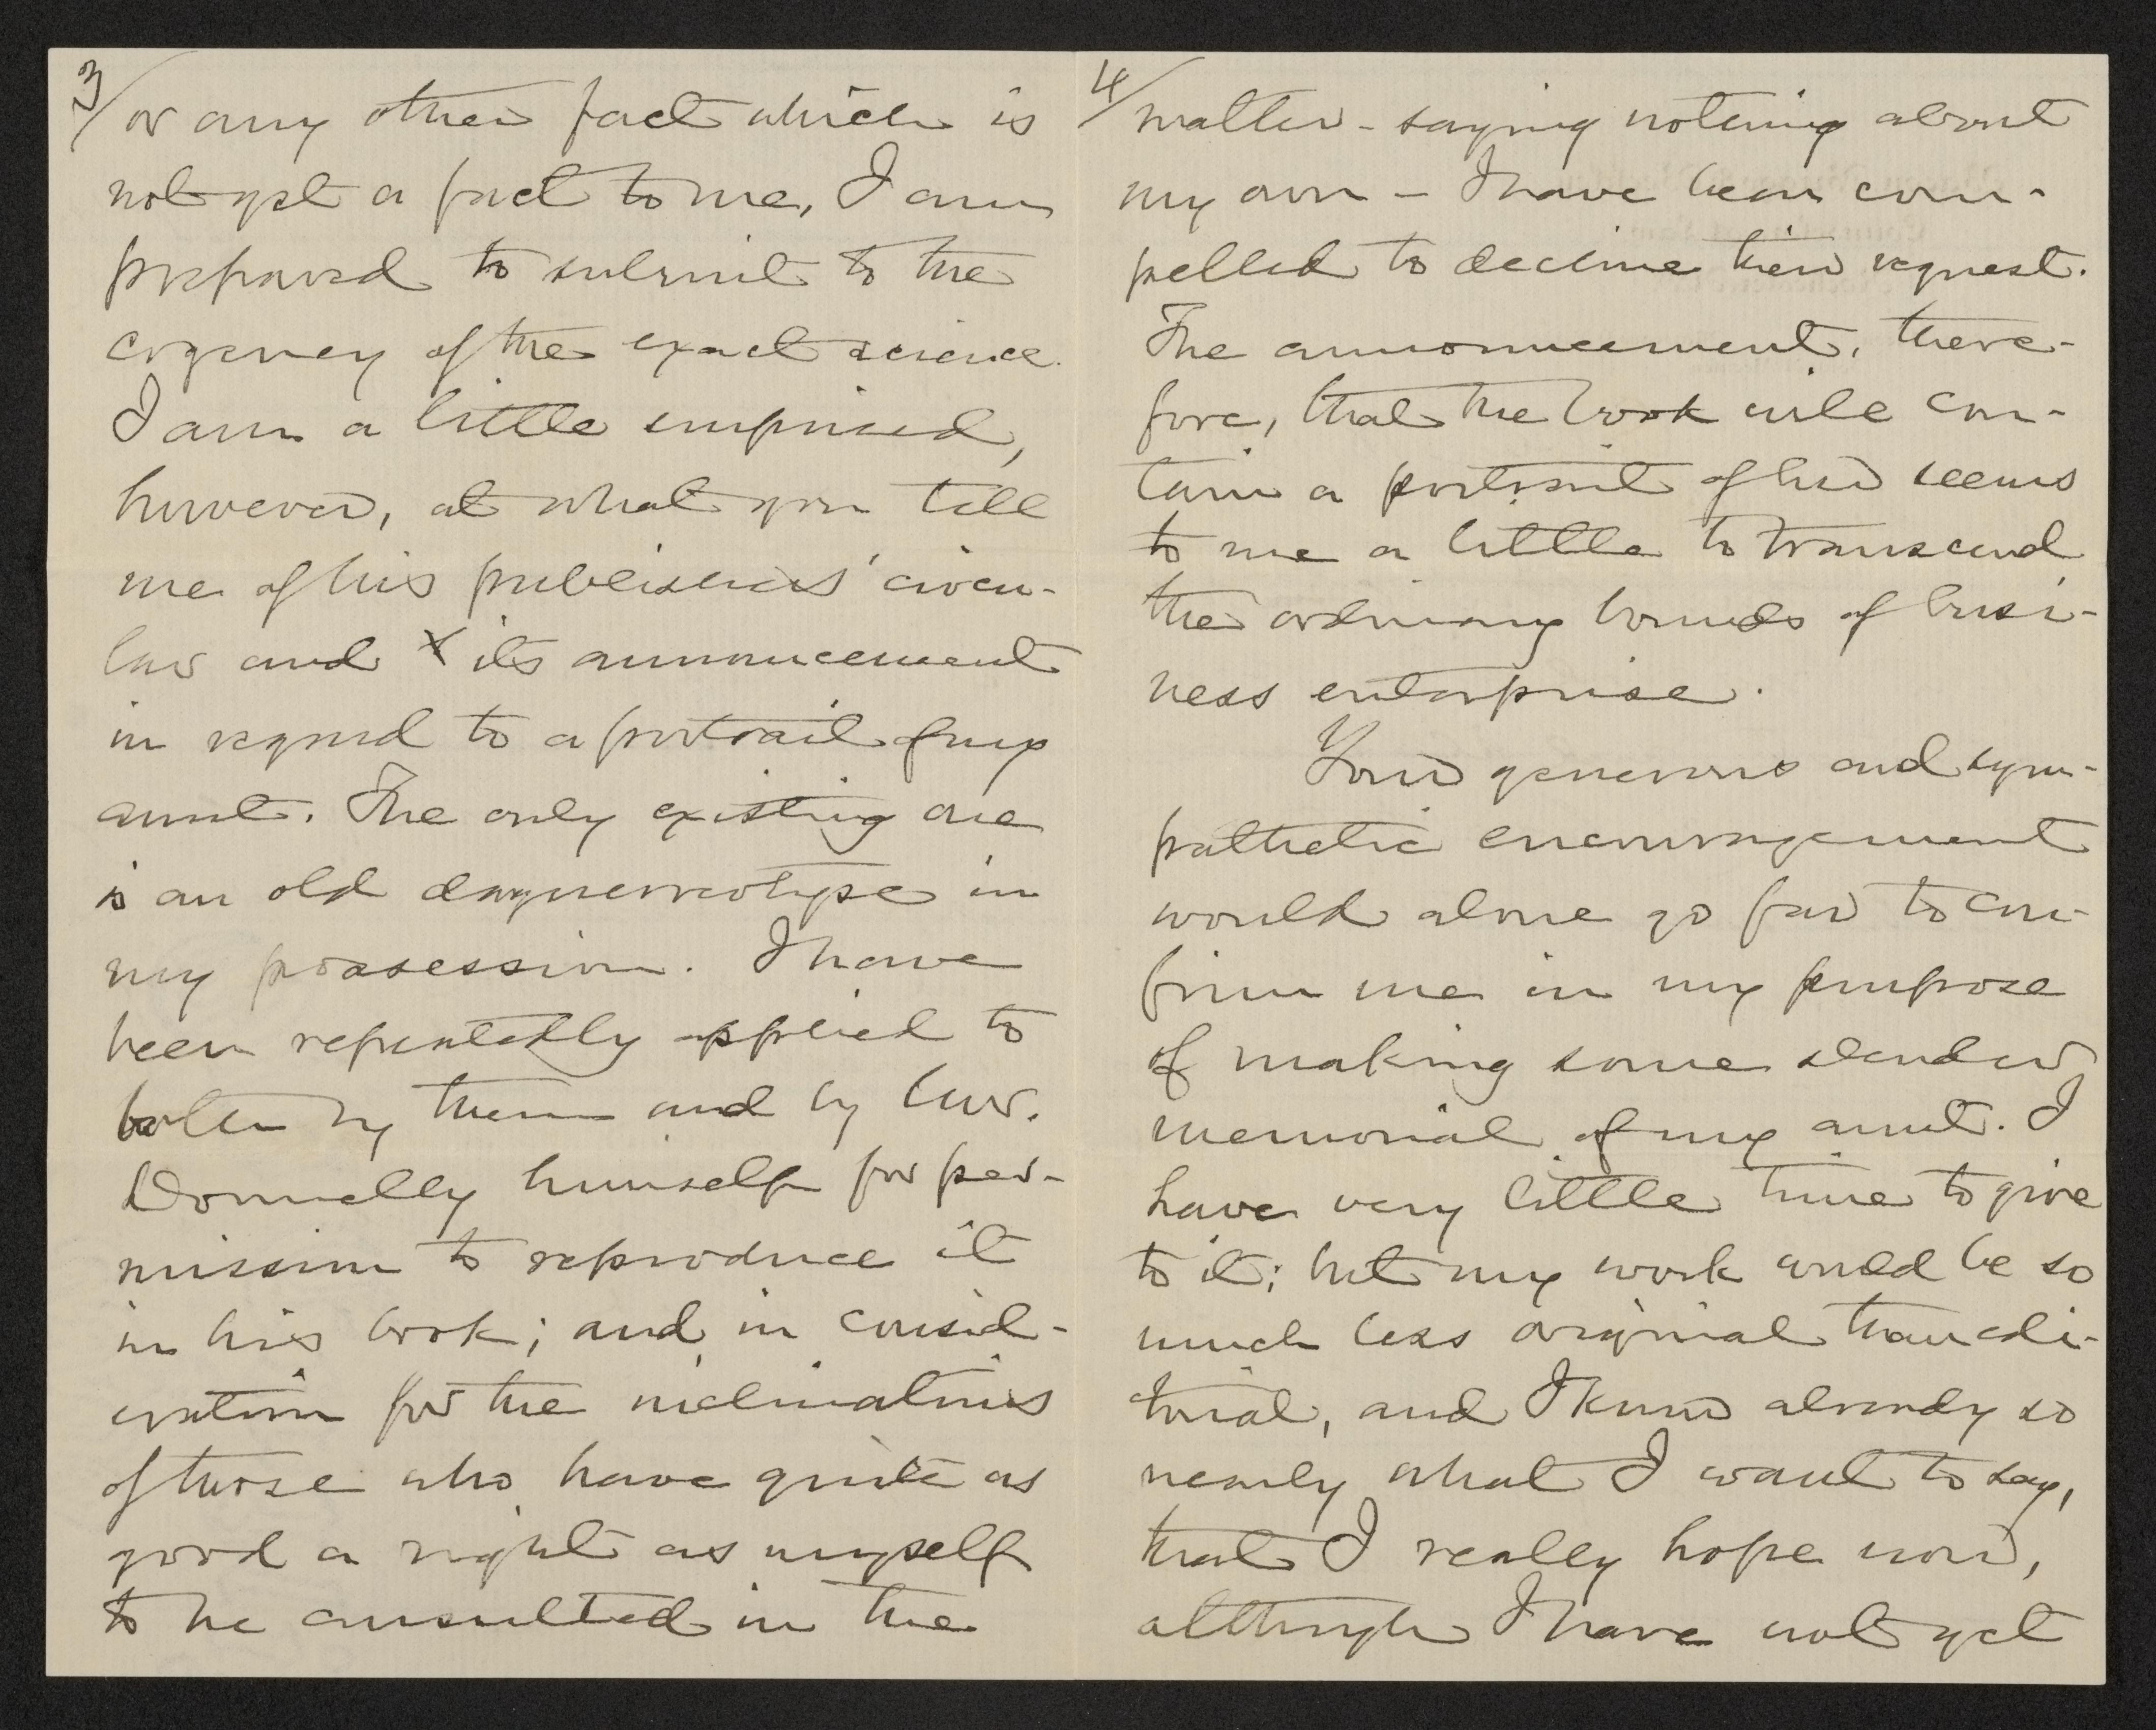 3/
or any other fact which is
not yet a fact to me, I am
prepared to submit to the
cogency of the exact science.
I am a little surprised,
however, at what you tell
me of his publishers' circu-
lar and x its announcement
in regard to a portrait of my
aunt. The only existing one
is an old daguerreotype in
my possession. I have
been repeatedly applied to
both by them and by Mr.
Donnelly himself for per-
mission to reproduce it
in his book; and in consid-
eration for the inclinations
of those who have quite as
good a right as myself
to be consulted in the
4/
matter - saying nothing about
my own - I have been com-
pelled to decline their request.
The announcement, there-
fore, that the book will con-
tain a portrait of her seems
to me a little to transcend
the ordinary bounds of busi-
ness enterprise.
Your generous and sym-
pathetic encouragement
would alone go far to con-
firm me in my purpose
of making some slender
memorial of my aunt. I
have very little time to give
to it; but my work would be so
much less original than edi-
torial, and I know already so
nearly what I want to say,
that I really hope now,
although I have not yet